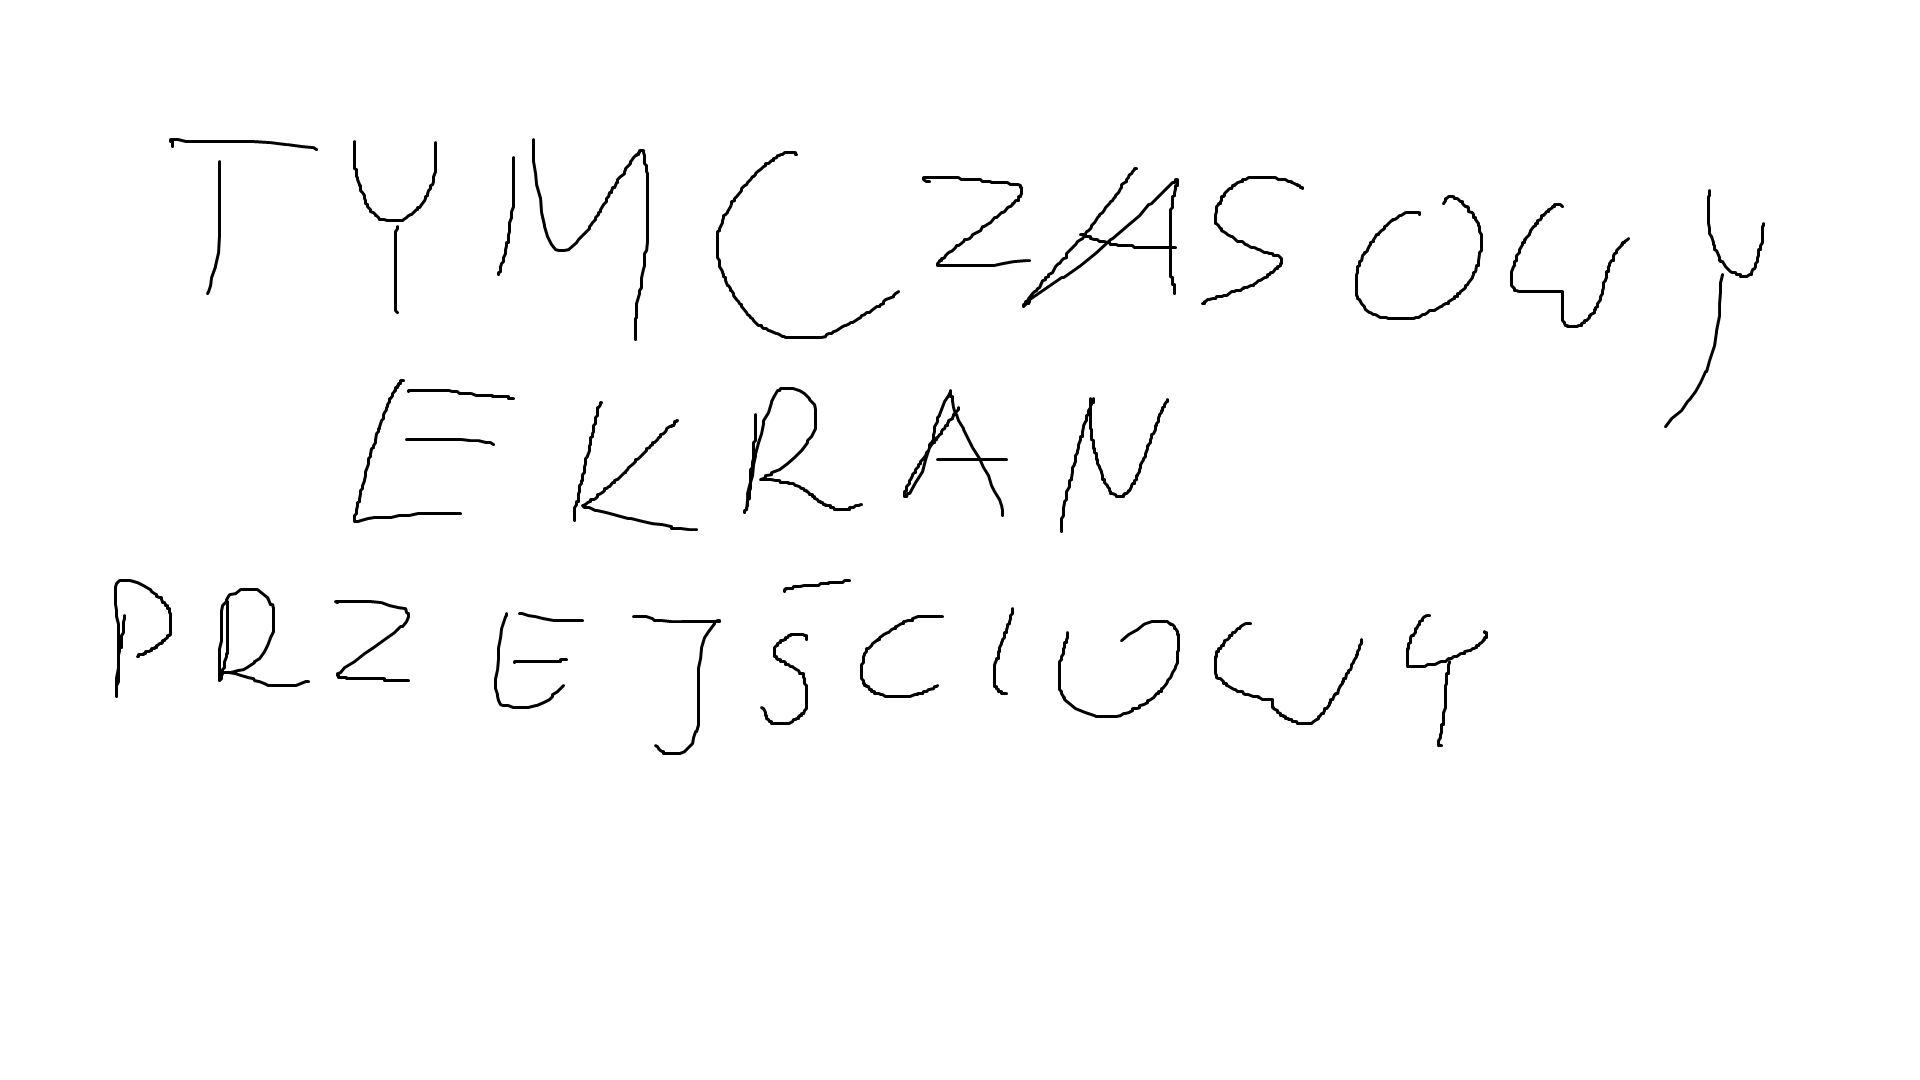 TYMCZASOWY
EKRAN
PRZEJŚCIOWY